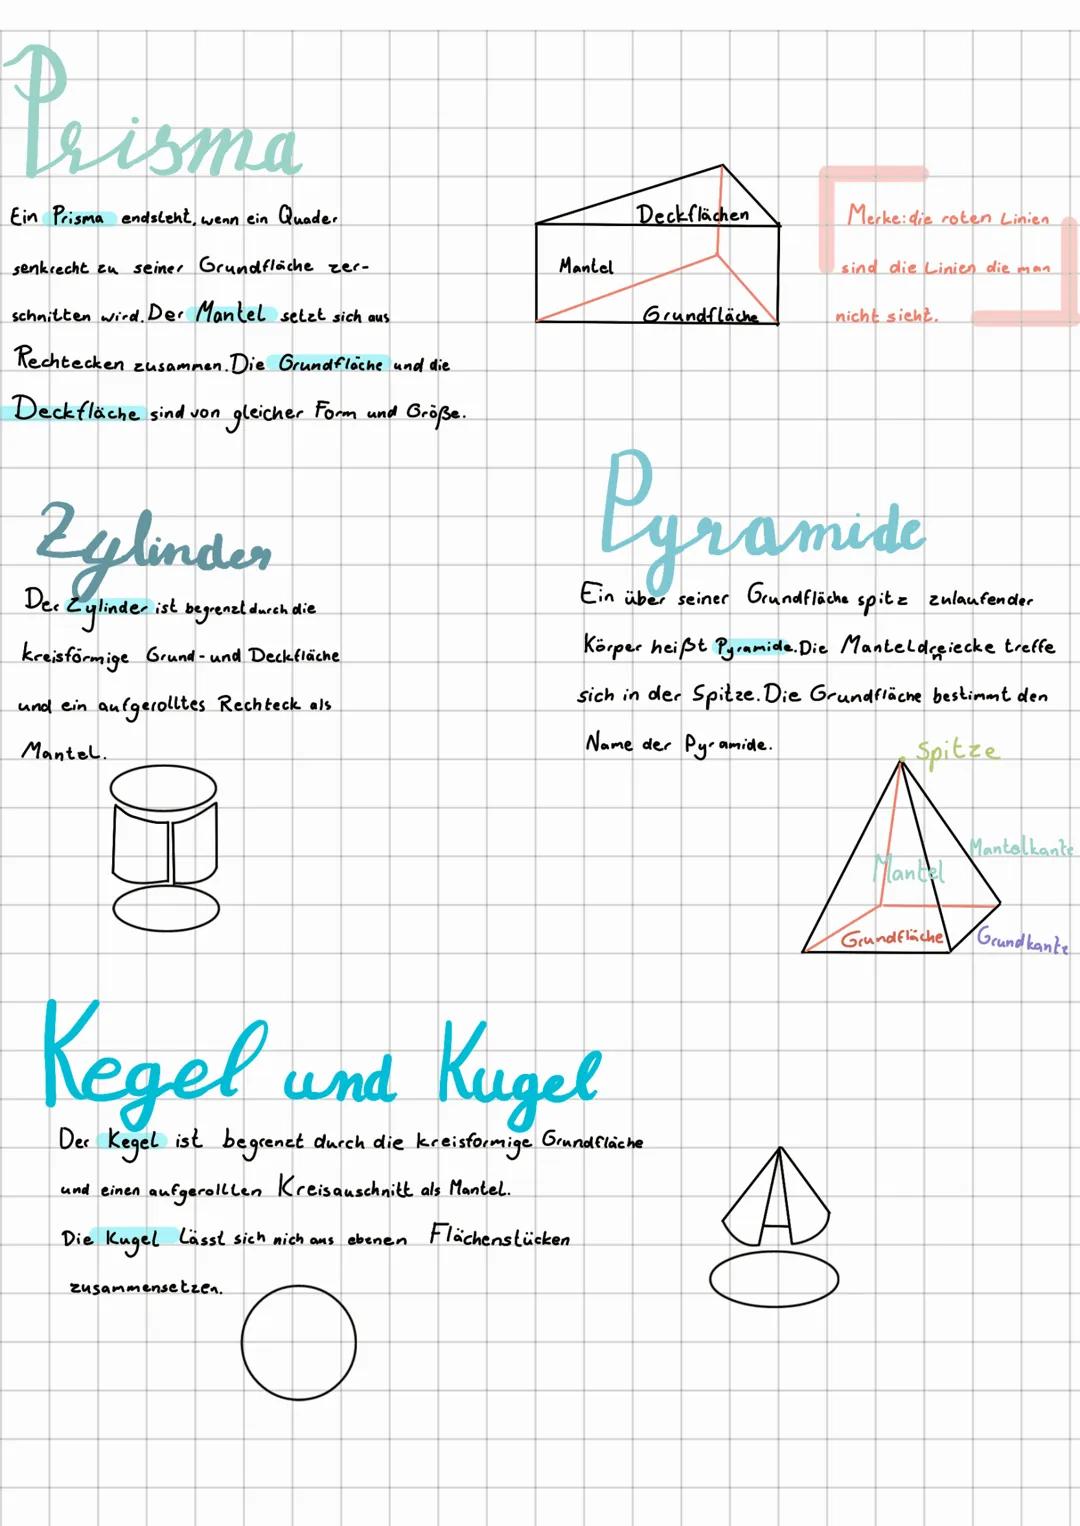 Prisma
Ein Prisma endsteht, wenn ein Quader
senkrecht zu seiner Grundfläche zer-
schnitten wird. Der Mantel setzt sich aus
Rechtecken zusammen. Die Grundfläche und die
Deckfläche sind von gleicher Form und Größe.
Deckflächen
Mantel
Grundfläche
Merke: die roten Linien
sind die Linien die man
nicht sieht.
Zylinder
Der Zylinder ist begrenzt durch die
kreisförmige Grund- und Deckfläche
und ein aufgerolltes Rechteck als
Mantel.
Pyramide
Ein über seiner Grundfläche spitz zulaufender
Körper heißt Pyramide. Die Manteldreiecke treffe
sich in der Spitze. Die Grundfläche bestimmt den
Name der Pyramide.
Spitze
Mantelkante
Mantel
Grundfläche
Grundkante
Kegel und Kugel
Der Kegel ist begrenzt durch die kreisformige Grundfläche
und einen aufgerollten Kreisauschnitt als Mantel.
Die Kugel lässt sich nich aus ebenen Flächenstücken
zusammensetzen.